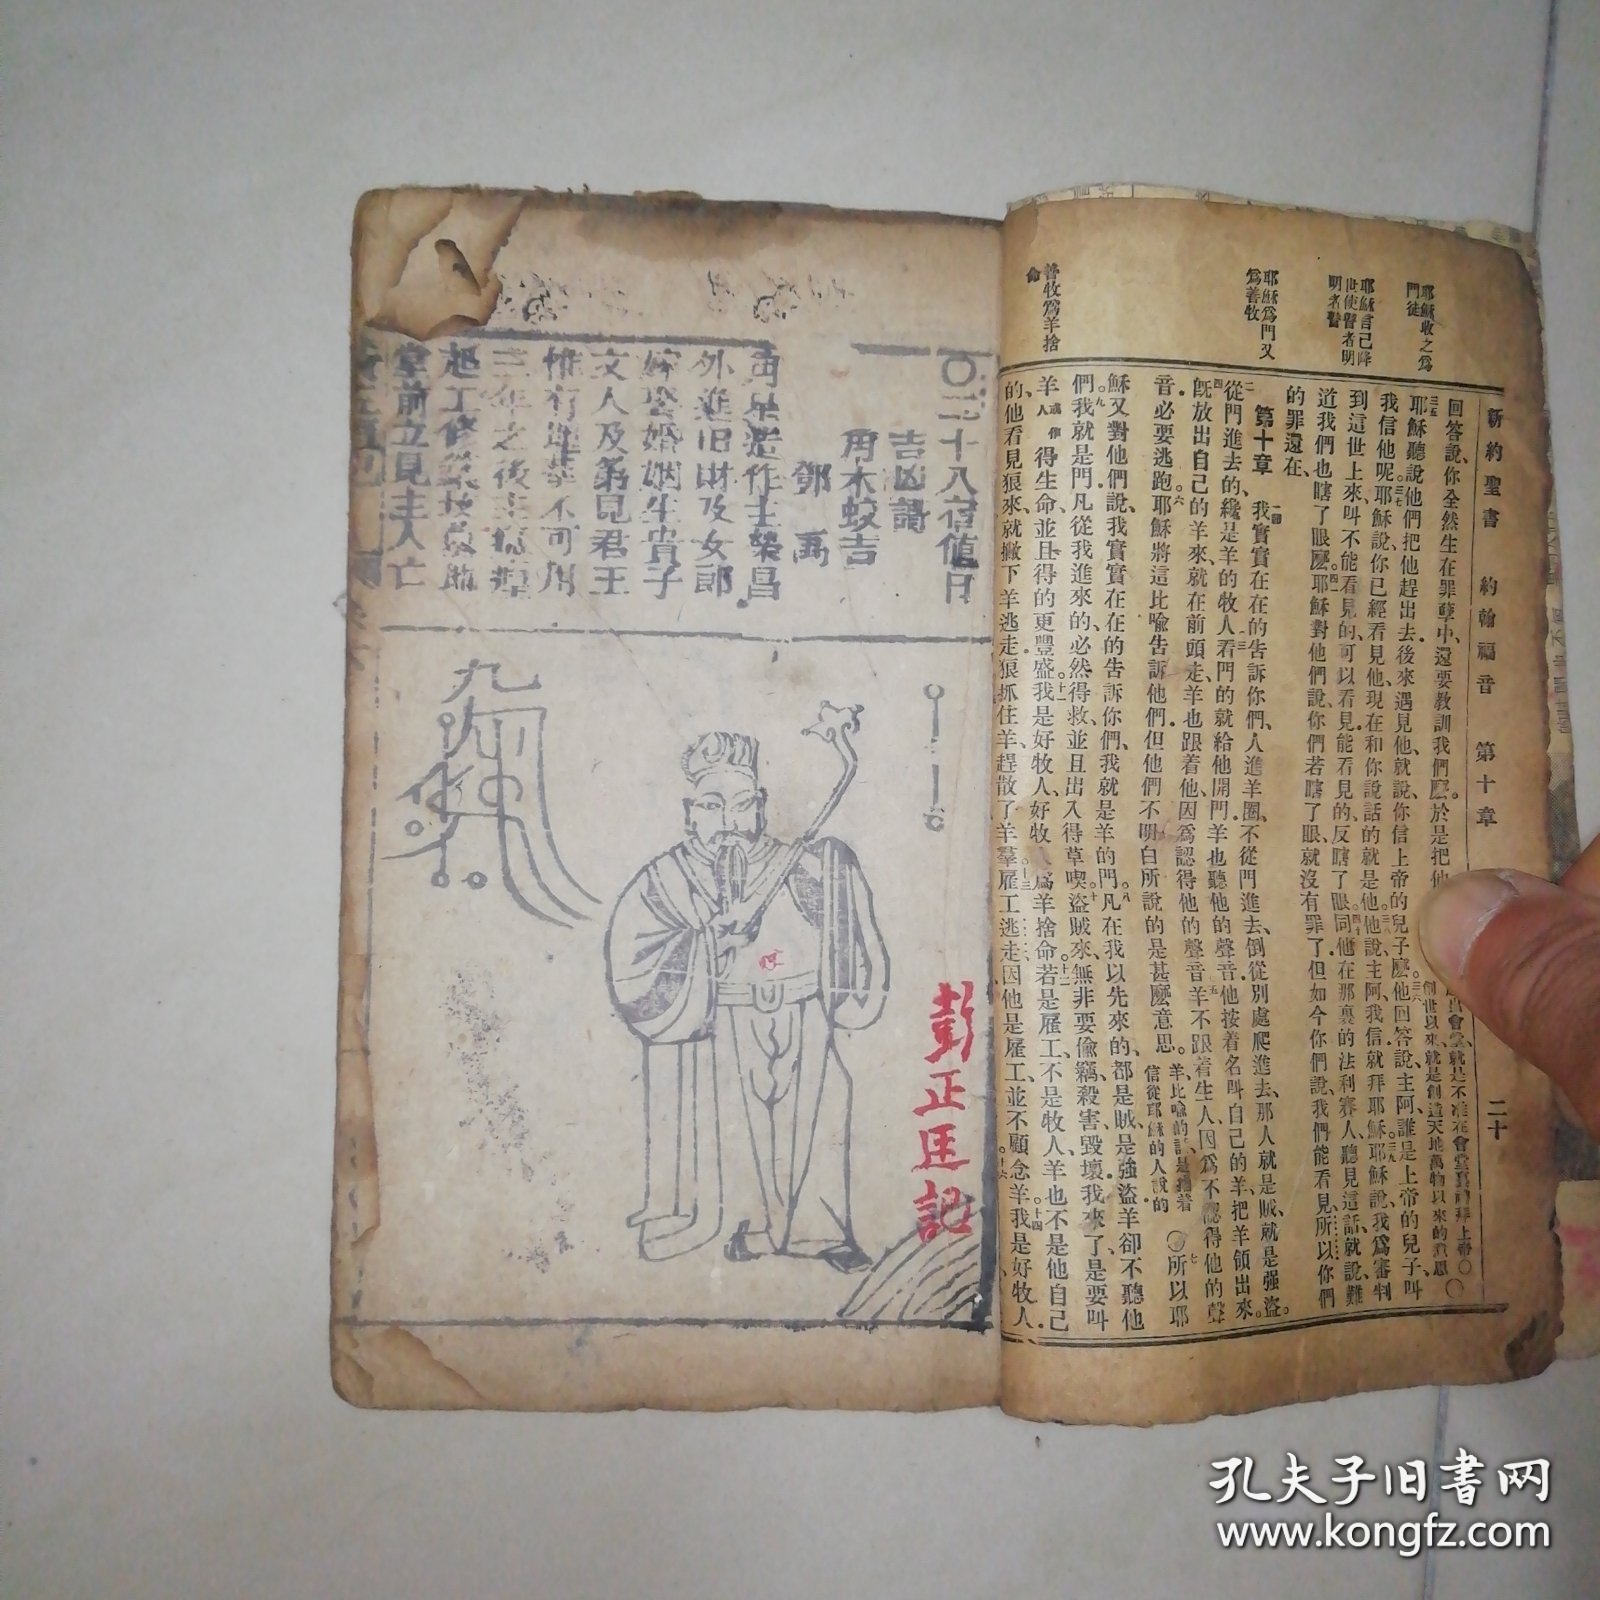 新約聖書 約翰福音 第十章 二十
耶穌收之爲
門徒
耶穌言己降
世使瞽者明
明者瞽
耶穌爲門又
爲善牧
善牧爲羊捨
命
回答說、你全然生在罪孽中、還要教訓我們麽。於是把他
耶穌聽說他們把他趕出去、後來遇見他、就說、你信上帝的兒子麽。他回答說、主阿、誰是上帝的兒子、叫
我信他呢。耶穌說、你已經看見他、現在和你說話的就是他。他說、主阿、我信、就拜耶穌。耶穌說、我爲審判
到這世上來、叫不能看見的、可以看見、能看見的、反瞎了眼。同他在那裏的法利賽人、聽見這話、就說、難
道我們也瞎了眼麽。耶穌對他們說、你們若瞎了眼、就沒有罪了、但如今你們說、我們能看見、所以你們
的罪還在。
第十章 我實實在在的告訴你們、人進羊圈、不從門進去、倒從別處爬進去、那人就是賊、就是强盜。
從門進去的、纔是羊的牧人。看門的就給他開門、羊也聽他的聲音、他按着名叫自己的羊、把羊領出來。
旣放出自己的羊來、就在前頭走、羊也跟着他、因爲認得他的聲音。羊不跟着生人、因爲不認得他的聲
音、必要逃跑。耶穌將這比喻告訴他們、但他們不明白所說的是甚麽意思。 〇所以耶
穌又對他們說、我實實在在的告訴你們、我就是羊的門。凡在我以先來的、都是賊、是強盜、羊卻不聽他
們。我就是門、凡從我進來的、必然得救、並且出入得草喫。盜賊來、無非要偸竊、殺害、毀壞、我來了、是要叫
羊 或作人 得生命、並且得的更豐盛。我是好牧人、好牧人爲羊捨命。若是雇工、不是牧人、羊也不是他自己
的、他看見狼來、就撇下羊逃走、狼抓住羊、趕散了羊羣。雇工逃走、因他是雇工、並不顧念羊。我是好牧人、
〇二十八宿値日
吉凶謌
角木蛟吉
鄧禹
角星造作主榮昌
外進旧財及女郎
嫁娶婚姻生貴子
文人及第見君王
惟有埋葬不可用
三年之後主瘟㾮
起工修築坟
堂前立見主人亡
彭正匡記
孔夫子旧书网
www.kongfz.com